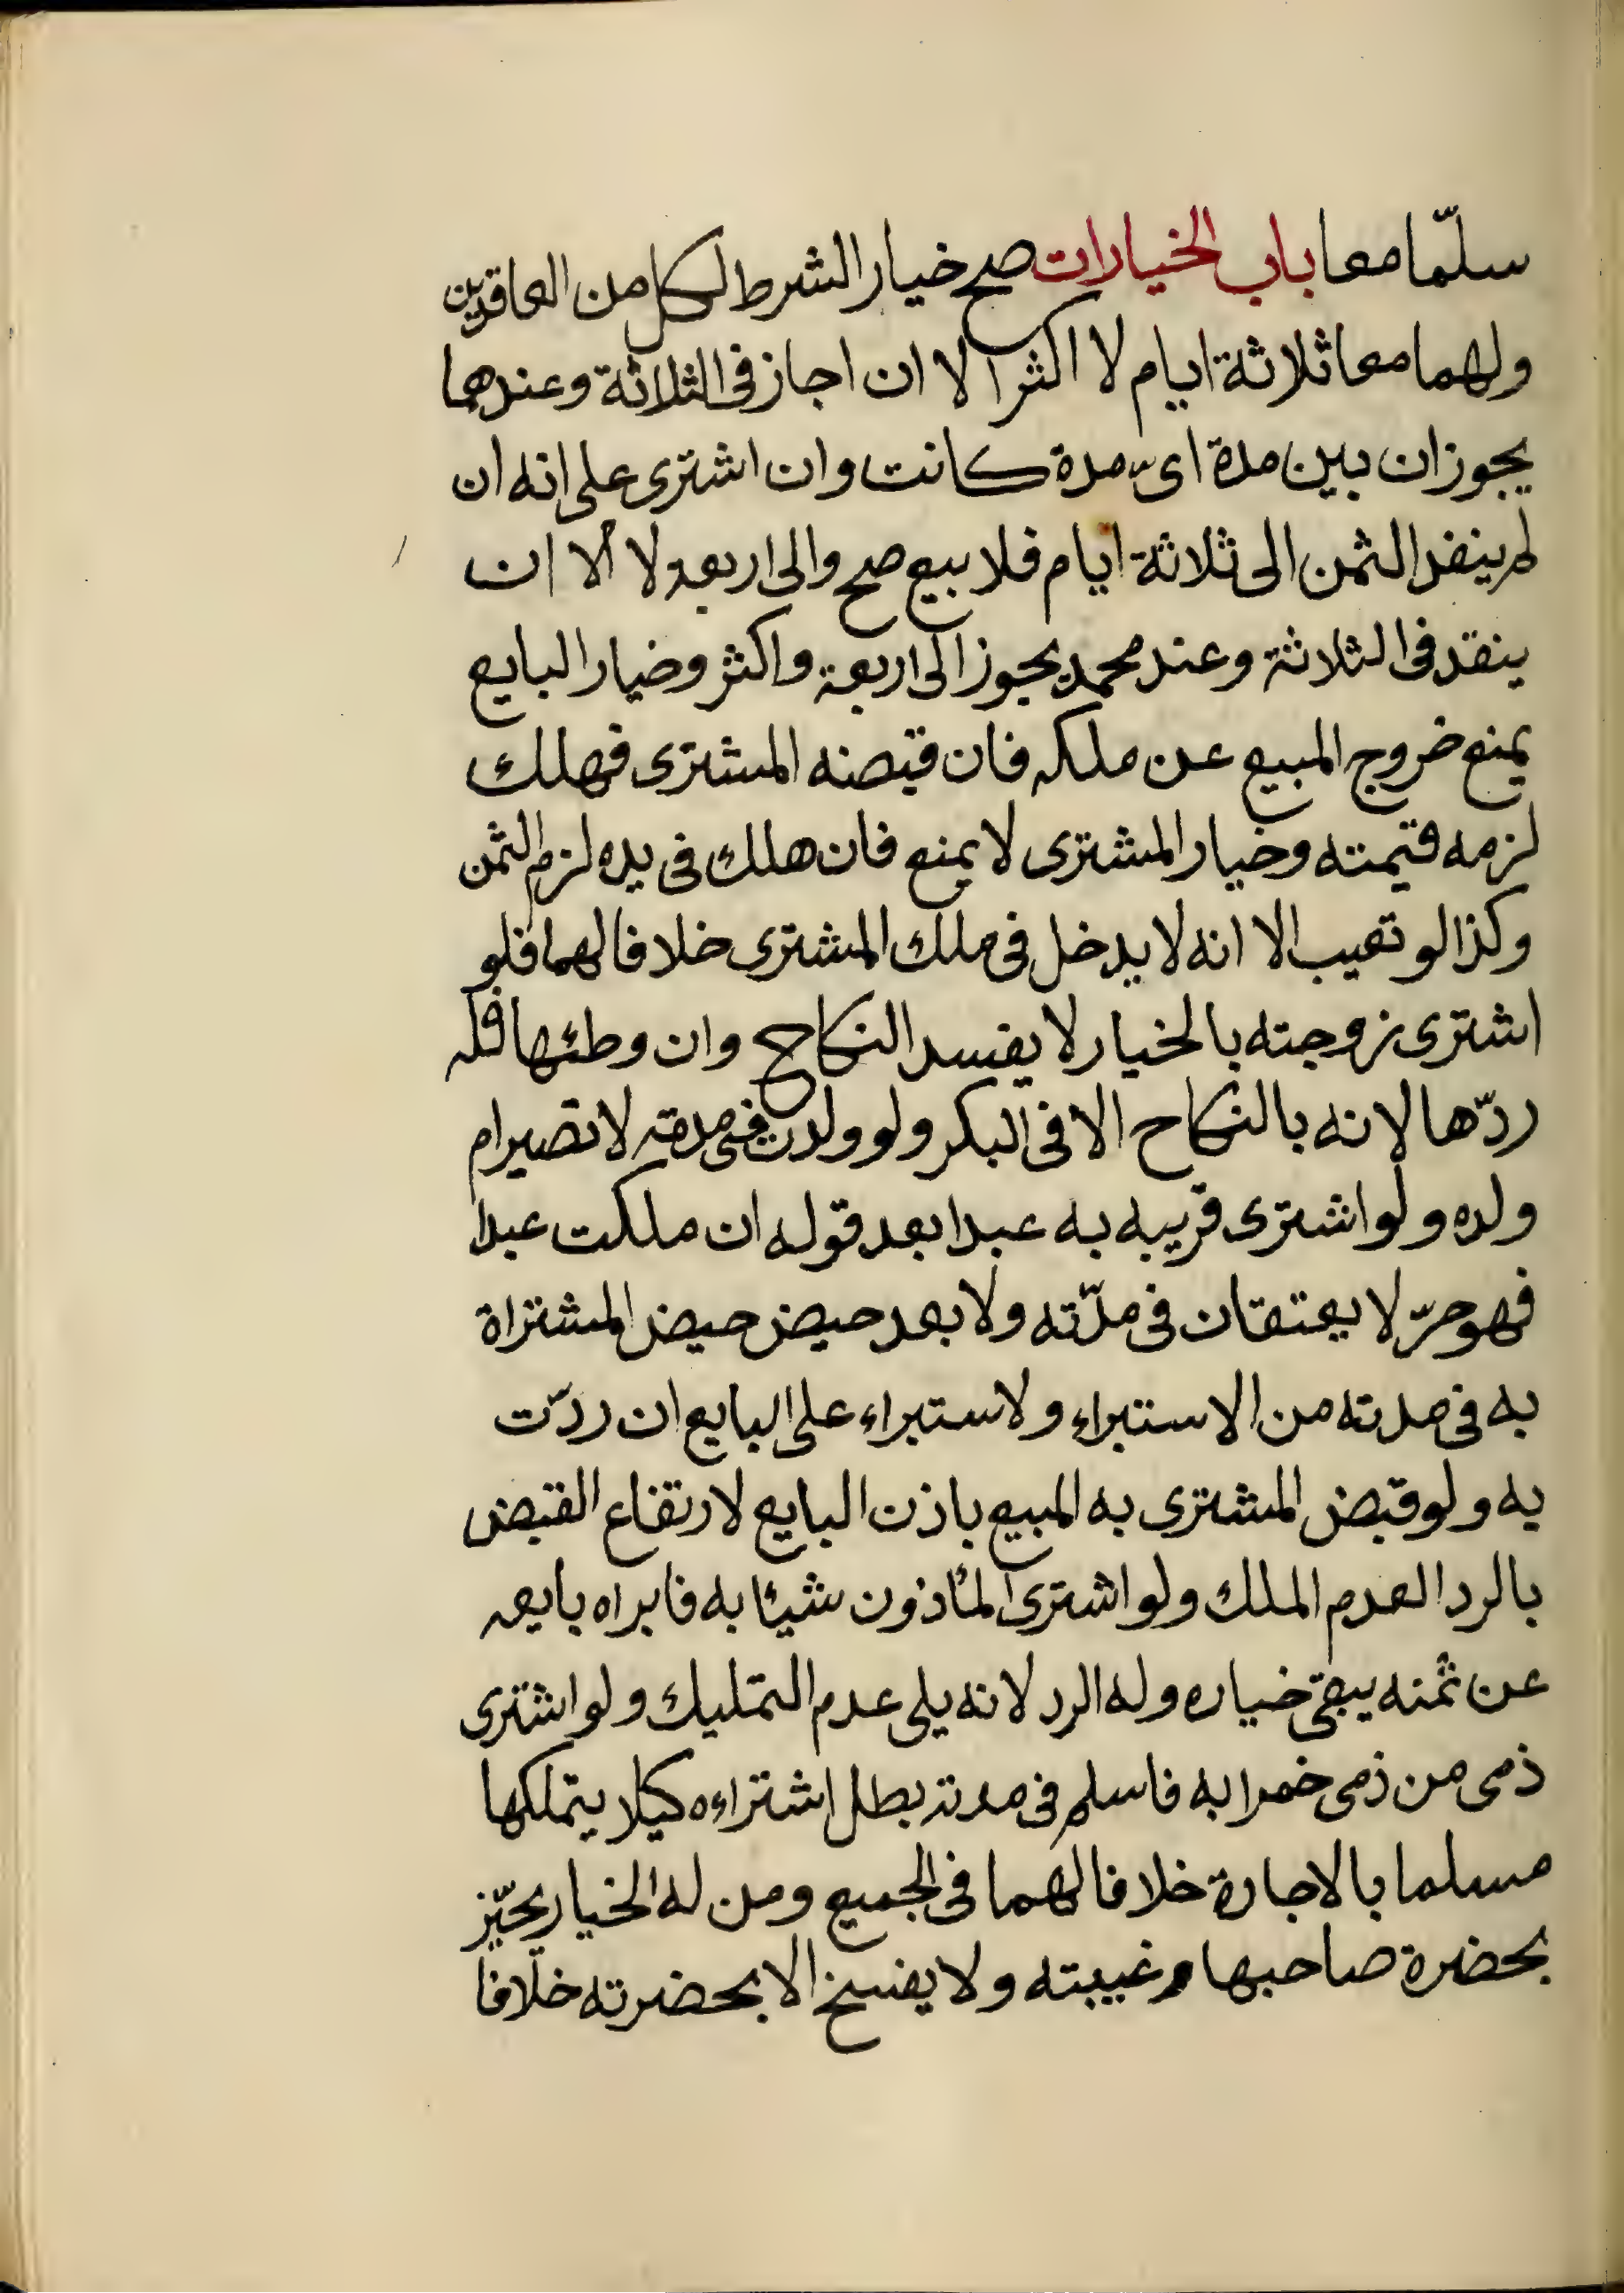 سلّما معا باب الخيارات صح خيار الشرط لكل من العاقدين
ولهما معا ثلاثة ايام لا اكثر الا ان اجاز فى الثلاثة وعندهما
يجوز ان بين مدة اىّ مدة كانت وان اشترى على انه ان
لم ينقد الثمن الى ثلاثة ايام فلا بيع صح والى اربعة لا الا ان
ينقد فى الثلاثة وعند محمد يجوز الى اربعة واكثر وخيار البايع
يمنع خروج المبيع عن ملكه فان قبضه المشترى فهلك
لزمه قيمته وخيار المشترى لا يمنع فان هلك فى يده لزم الثمن
وكذا لو تعيب الا انه لا يدخل فى ملك المشترى خلافا لهما فلو
اشترى زوجته بالخيار لا يفسد النكاح وان وطئها فله
ردّها لانه بالنكاح الا فى البكر ولو ولدت فى مدته لا تصير ام
ولده ولو اشترى قريبه به عبدا بعد قوله ان ملكت عبدا
فهو حرّ لا يعتقان فى مدّته ولا بعد حيض حيض المشتراة
به فى مدته من الاستبراء ولا ستبراء على البايع ان ردّت
به ولو قبض المشترى به المبيع باذن البايع لارتفاع القبض
بالرد العدم الملك ولو اشترى المأذون شيئا به فابراه بايعه
عن ثمنه يبقى خياره وله الرد لانه يلى عدم التمليك ولو اشترى
ذمى من ذمى خمرا به فاسلم فى مدته بطل اشتراءه كيلا يتملكها
مسلما بالاجارة خلافا لهما فى الجميع ومن له الخيار يجيّز
بحضرة صاحبها وغيبته ولا يفسخ الا بحضرته خلافا